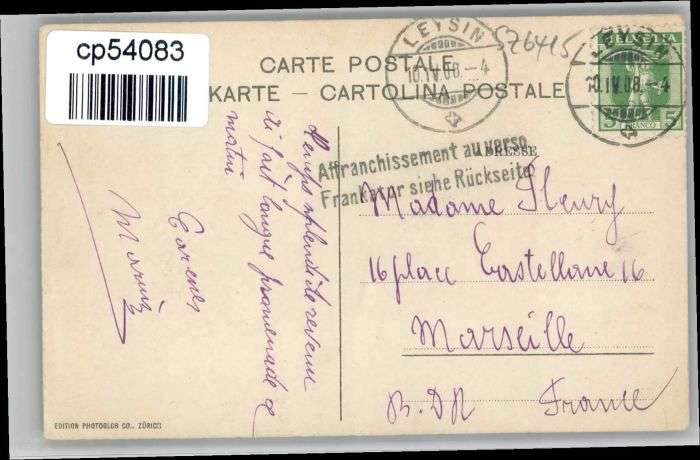 cp54083
S76415
LEYSIN
10.IV.08.-4
HELVETIA
LEYSIN
10.IV.08.-4
5 FRANCO 5
CARTE POSTALE
KARTE — CARTOLINA POSTALE
Affranchissement au verso
Frankatur siehe Rückseite
ADRESSE
Madame Fleury
16 place Castellane 16
Marseille
B.DR France
Temps splendide revenu
ai fait longue promenade ce
matin
Caresses
EDITION PHOTOGLOB CO., ZÜRICH